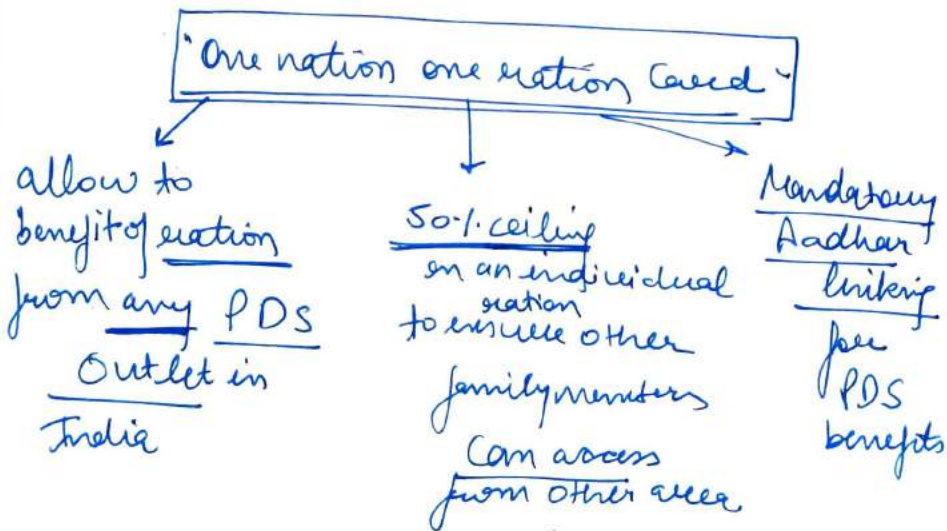 "One nation one ration Card"
allow to
benefit of ration
from any PDS
Outlet in
India
50% ceiling
on an individual
ration
to ensure other
family members
Can access
from other area
Mandatory
Aadhar
linking
for
PDS
benefits